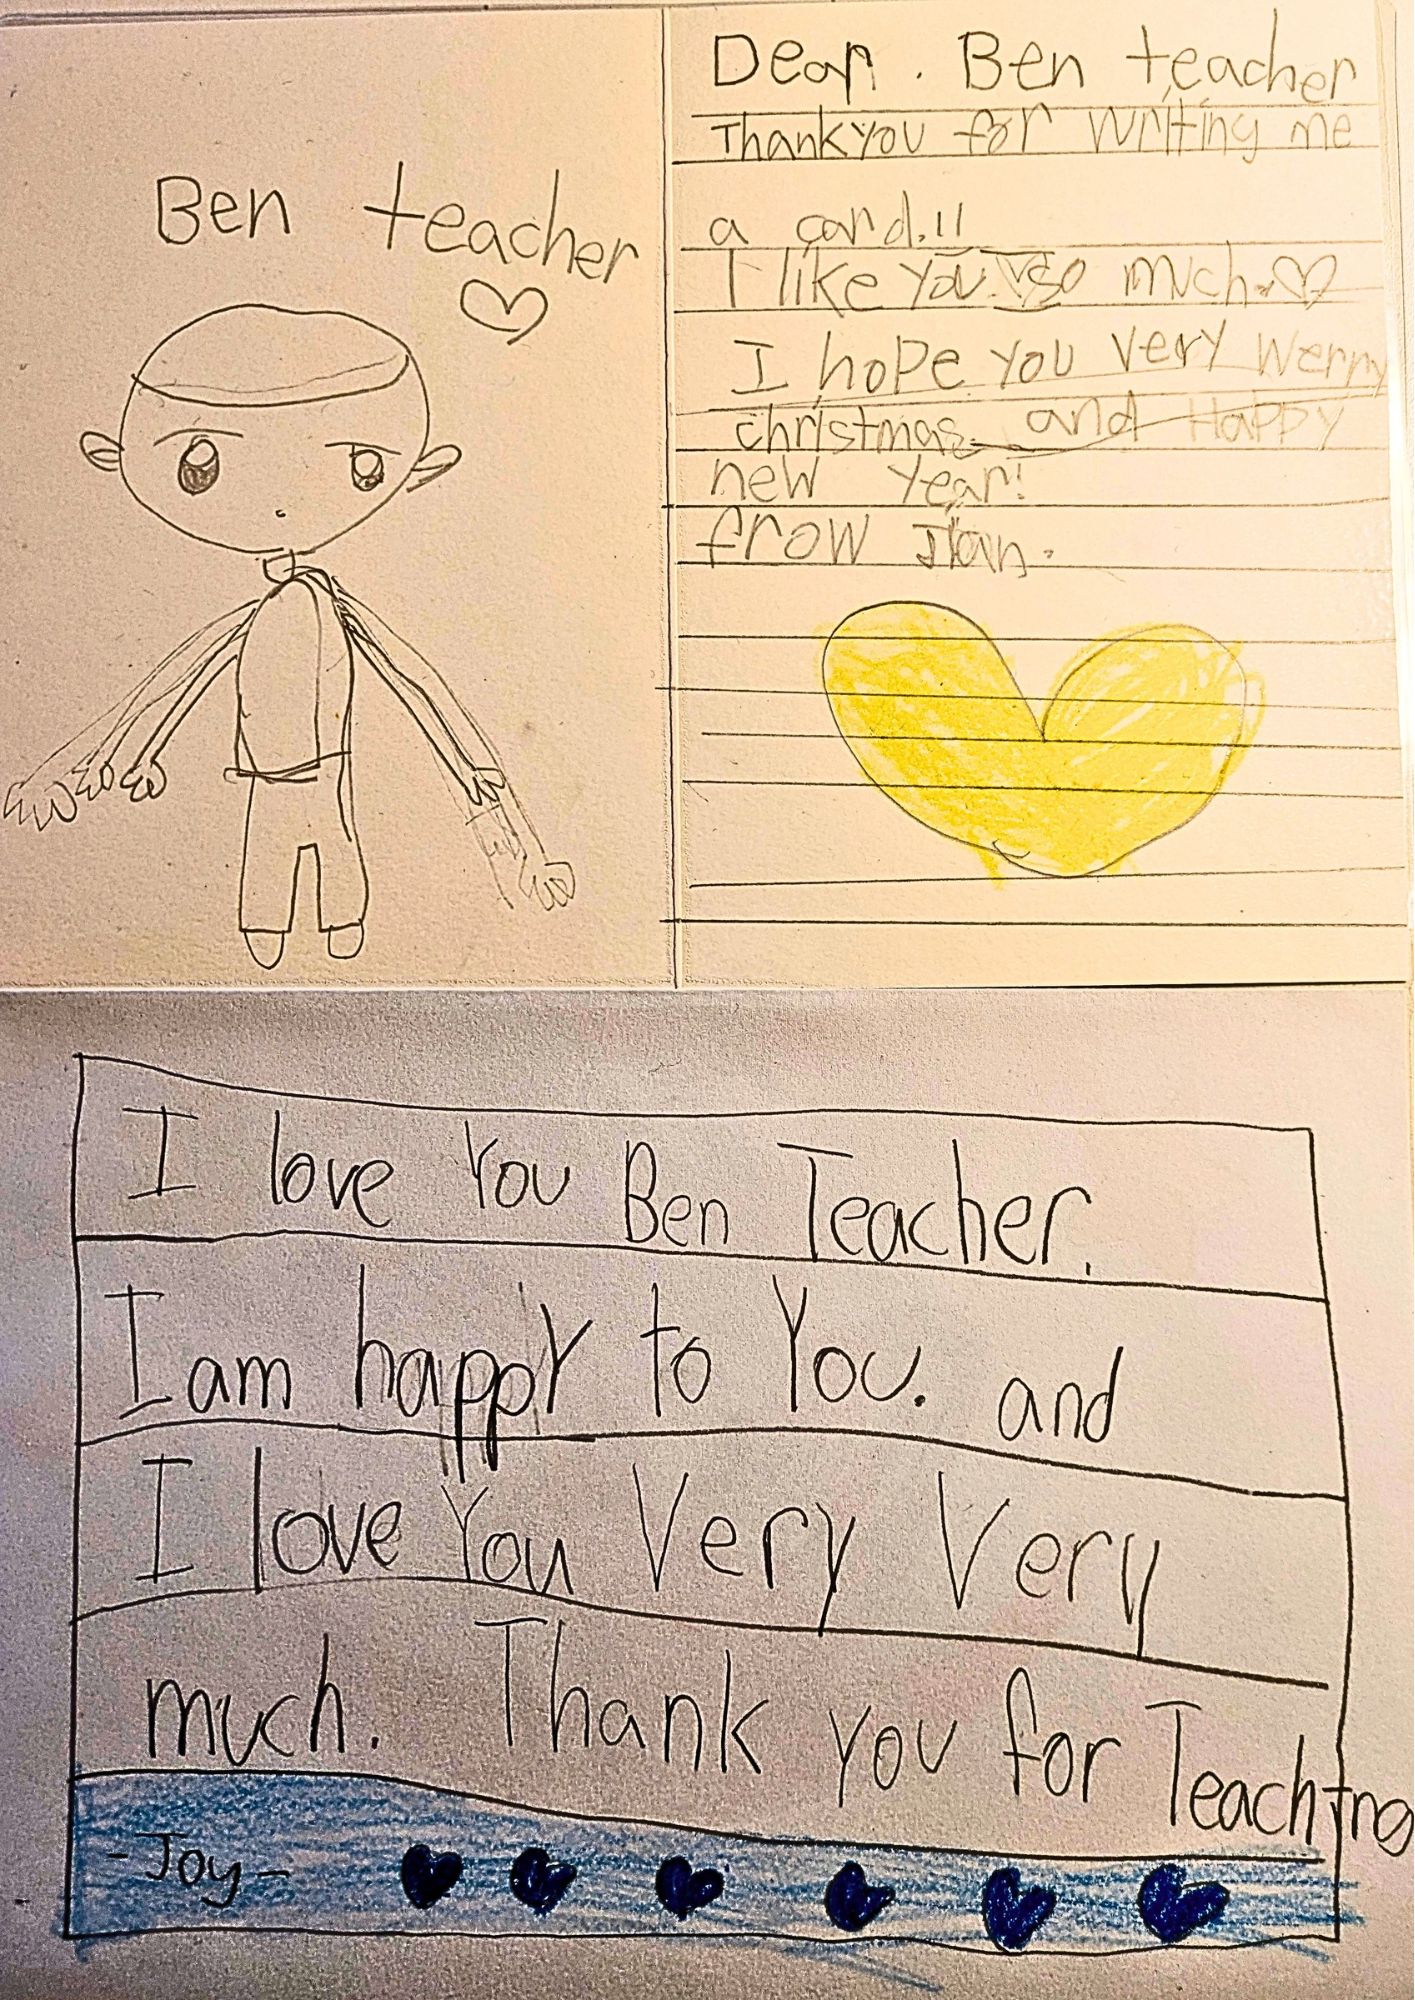 Ben teacher
Dear. Ben teacher
Thank you for writing me
a card.!!
I like you so much.
I hope you very werry
christmas and Happy
new year!
frow
I love you Ben Teacher.
I am happy to You. and
I love you Very Very
much. Thank you for Teaching
-Joy-